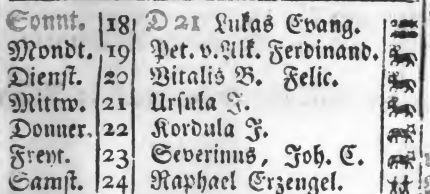 Sonnt. 18 D 21 Lukas Evang.
Mondt. 19 Pet. v. Alk. Ferdinand.
Dienst. 20 Vitalis B. Felic.
Mittw. 21 Ursula J.
Donner. 22 Kordula J.
Freyt. 23 Severinus, Joh. C.
Samst. 24 Raphael Erzengel.